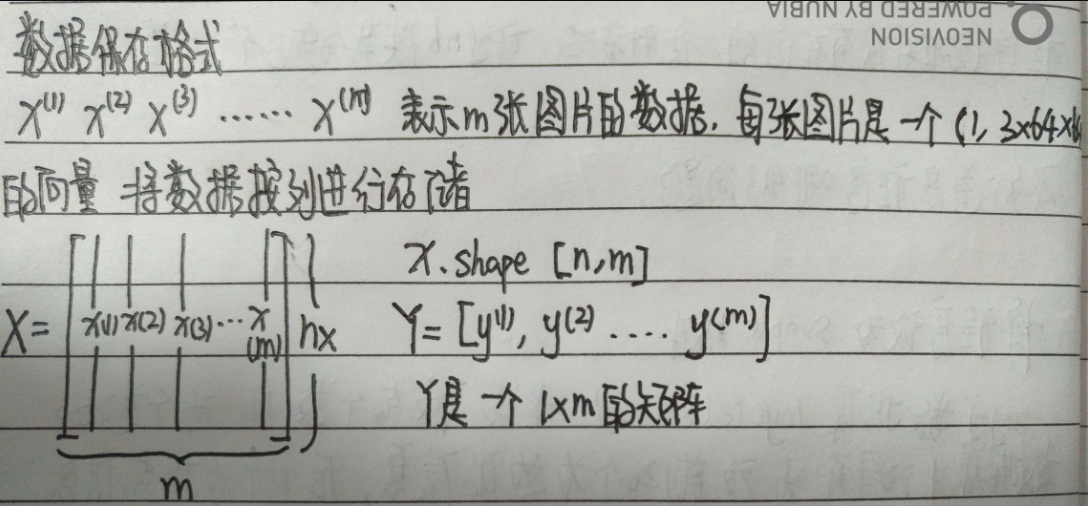 NEOVISION
POWERED BY NUBIA
数据保存格式
x(1) x(2) x(3) ······ x(m) 表示m张图片的数据,每张图片是一个(1, 3×64×6
的向量 将数据按列进行存储
X = x(1) x(2) x(3) ··· x(m) nx
m
x.shape [n,m]
Y = [y(1), y(2) ···· y(m)]
Y是一个1×m的矩阵